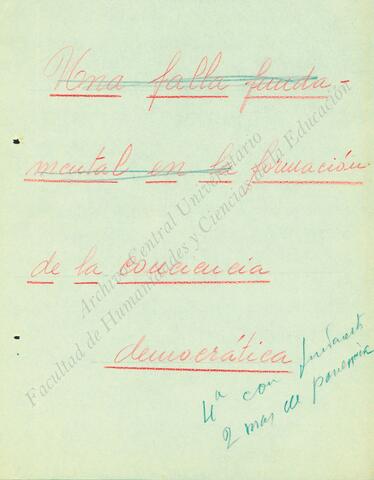 Una falla funda-
mental en la formación
de la conciencia
democrática
4ª con
2 mas de ponencia
Archivo Central Universitario
Facultad de Humanidades y Ciencias de la Educación